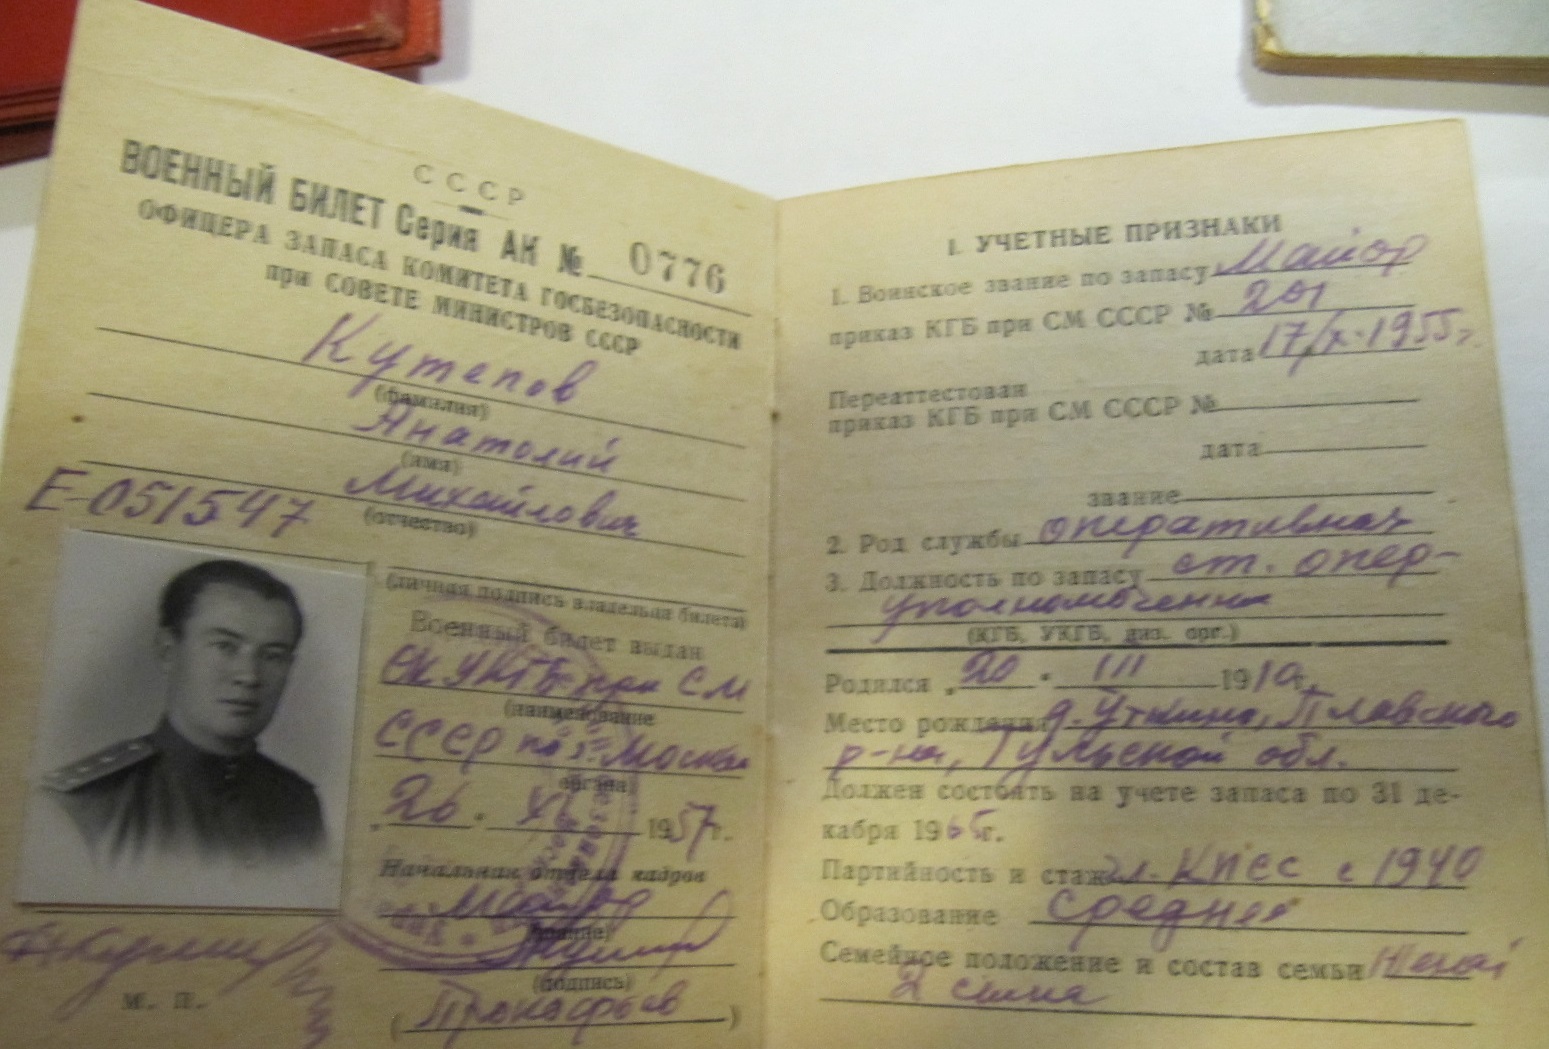 СССР
ВОЕННЫЙ БИЛЕТ Серия АК № 0776
ОФИЦЕРА ЗАПАСА КОМИТЕТА ГОСБЕЗОПАСНОСТИ
при СОВЕТЕ МИНИСТРОВ СССР
Кутепов
(фамилия)
Анатолий
(имя)
Михайлович
(отчество)
Е-051547
(личная подпись владельца билета)
Военный билет выдан
ОК УКГБ при СМ
(наименование
СССР по г. Москве
органа)
„26" XI 1957г.
Начальник отдела кадров
Майор
(звание)
(подпись)
(Прокофьев)
М. П.
I. УЧЕТНЫЕ ПРИЗНАКИ
1. Воинское звание по запасу Майор
приказ КГБ при СМ СССР № 201
дата 17/X-1955г.
Переаттестован
приказ КГБ при СМ СССР №
дата
звание
2. Род службы оперативная
3. Должность по запасу ст. опер-
уполномоченн
(КГБ, УКГБ, низ. орг.)
Родился „20" III 191 г.
Место рождения д. Уткино, Плавского
р-на, Тульской обл.
Должен состоять на учете запаса по 31 де-
кабря 1965г.
Партийность и стаж чл. КПСС с 1940
Образование среднее
Семейное положение и состав семьи Женат
2 сына